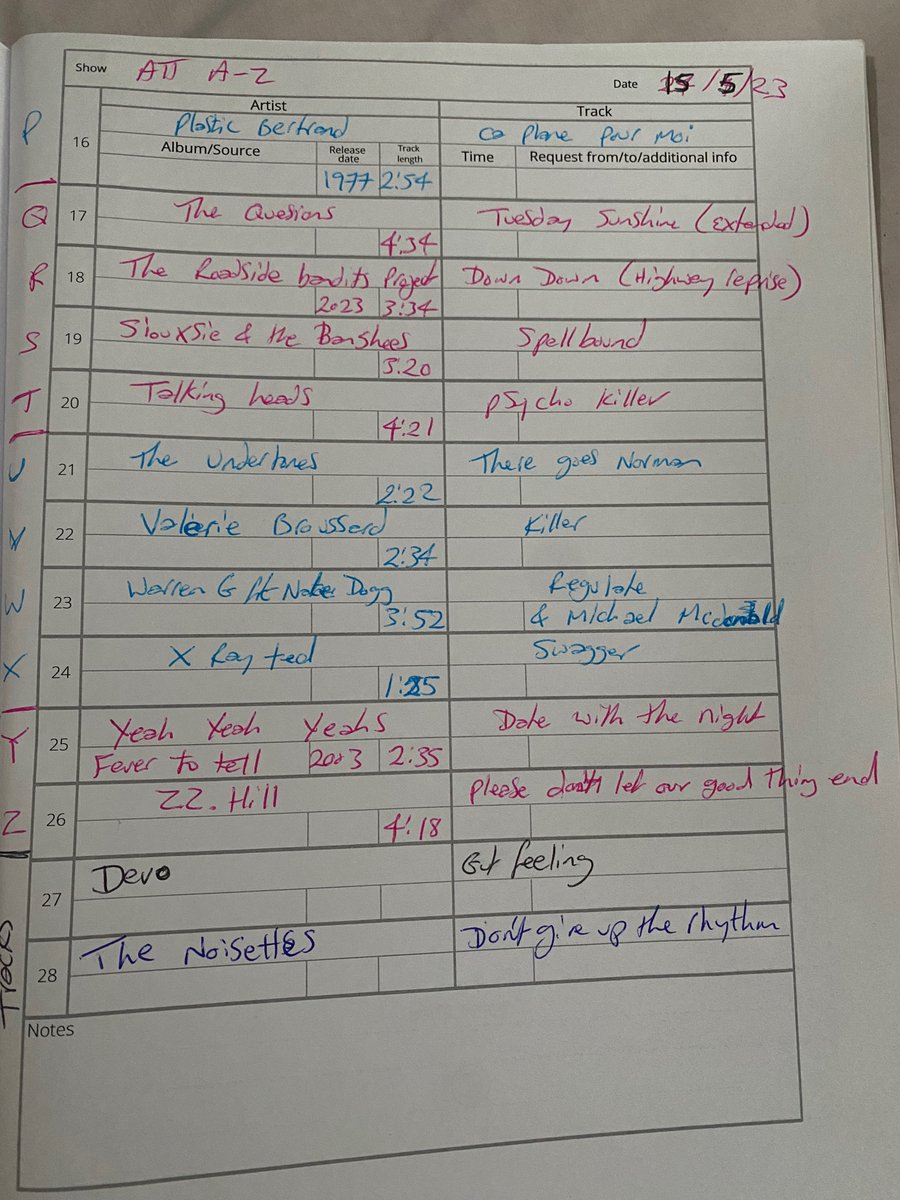 Show ATJ A-Z Date 15/5/23
Artist Track
P 16 Plastic Bertrand Ca Plane Pour Moi
Album/Source Release date Track length Time Request from/to/additional info
1977 2:54
Q 17 The Quesions Tuesday Sunshine (extended)
4:34
R 18 The Roadside bandits Project Down Down (Highway reprise)
2023 3:34
S 19 Siouxsie & the Banshees Spellbound
3:20
T 20 Talking heads Psycho Killer
4:21
U 21 The Undertones There goes Norman
2:22
V 22 Valerie Broussard Killer
2:34
W 23 Warren G ft Nate Dogg Regulate
3:52 & Michael Mcdonald
X 24 X Ray Ted Swagger
1:25
Y 25 Yeah Yeah Yeahs Date with the night
Fever to tell 2003 2:35
Z 26 Z.Z. Hill Please don't let our good thing end
4:18
27 Devo Gut feeling
28 The Noisettes Don't give up the rhythm
Tracks
Notes